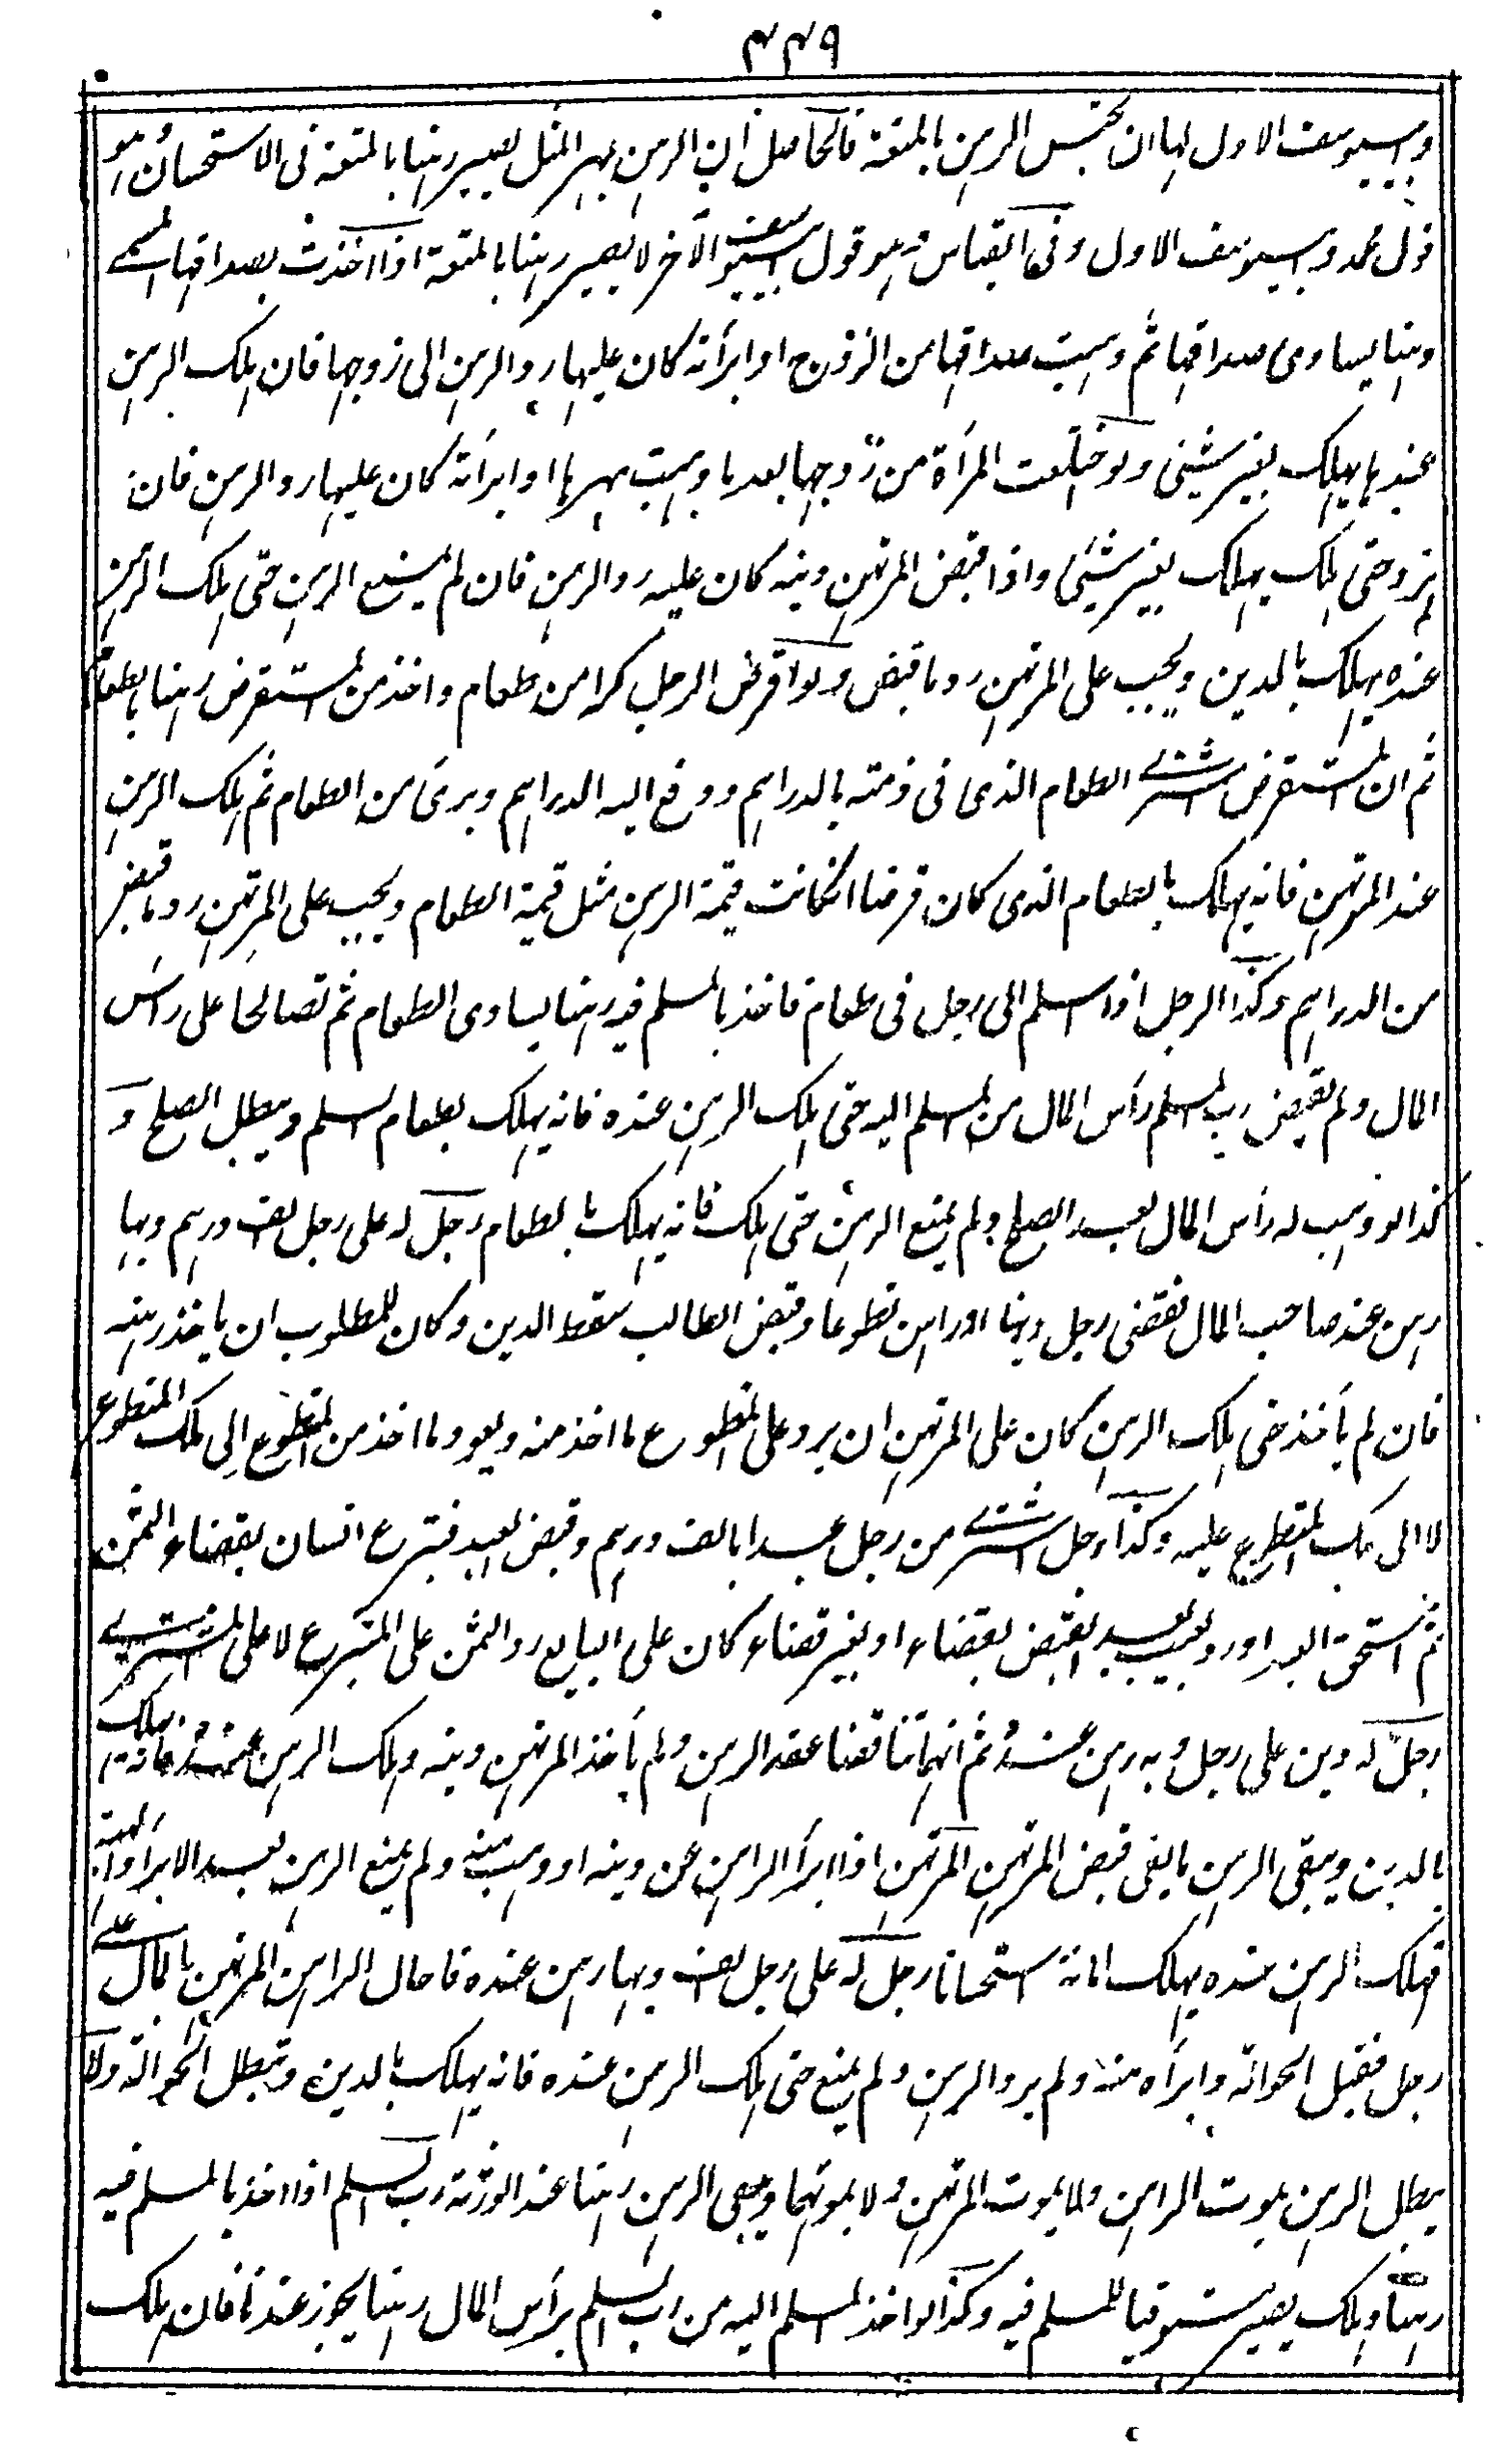 ۴۴۹
وابي يوسف الاول لها ان تحبس الرهن بالمتعة فالحاصل ان الرهن بمهر المثل يصير رهنا بالمتعة فى الاستحسان وهو
قول محمد وابي يوسف الاول وفى القياس وهو قول ابي يوسف الآخر لا يصير رهنا بالمتعة اذا اخذت بصداقها المسمى
رهنا يساوى صداقها ثم وهبت صداقها من الزوج او ابرأته كان عليها رد الرهن الى زوجها فان هلك الرهن
عندها يهلك بغير شيئى ولو اختلعت المرأة من زوجها بعد ما وهبت مهرها او ابرأته كان عليها رد الرهن فان
لم ترد حتى هلك يهلك بغير شيئى واذا قبض المرتهن دينه كان عليه رد الرهن فان لم يمنع الرهن حتى هلك الرهن
عنده يهلك بالدين ويجب على المرتهن رد ما قبض ولو اقرض الرجل كرا من طعام واخذ من المستقرض رهنا بالطعام
ثم ان المستقرض اشترى الطعام الذى فى ذمته بالدراهم ودفع اليه الدراهم وبرئ من الطعام ثم هلك الرهن
عند المرتهن فانه يهلك بالطعام الذى كان قرضا انكانت قيمة الرهن مثل قيمة الطعام ويجب على المرتهن رد ما قبض
من الدراهم وكذا الرجل اذا اسلم الى رجل فى طعام فاخذ بالمسلم فيه رهنا يساوى الطعام ثم تصالحا على رأس
المال ولم يقبض رب المسلم رأس المال من المسلم اليه حتى هلك الرهن عنده فانه يهلك بطعام السلم ويبطل الصلح و
كذا لو وهب له رأس المال بعد الصلح ولم يمنع الرهن حتى هلك فانه يهلك بالطعام رجل له على رجل الف درهم وبها
رهن عند صاحب المال فقضى رجل دينها الراهن تطوعا وقبض الطالب سقط الدين وكان للمطلوب ان ياخذ رهنه
فان لم يأخذ حتى هلك الرهن كان على المرتهن ان يرد على المتطوع ما اخذ منه ويعود ما اخذ من المتطوع الى ملك المتطوع
لا الى ملك المتطوع عليه وكذا رجل اشترى من رجل عبدا بالف درهم وقبض العبد فتبرع انسان بقضاء الثمن
ثم استحق العبد او رد بعيب بعد القبض بقضاء او بغير قضاء كان على البايع رد الثمن على المتبرع لا على المشترى
رجل له دين على رجل وبه رهن عنده ثم انهما تناقضا عقد الرهن ولم يأخذ المرتهن دينه وهلك الرهن عنده فانه يهلك
بالدين ويبقى الرهن ما بقى قبض المرتهن المرتهن اذا ابرأ الراهن عن دينه او وهب منه ولم يمنع الرهن بعد الابراء والهبة
فهلك الرهن عنده يهلك امانة استحسانا رجل له على رجل الف وبها رهن عنده فاحال الراهن المرتهن بالمال على
رجل فقبل الحوالة وابرأه منه ولم يرد الرهن ولم يمنع حتى هلك الرهن عنده فانه يهلك بالدين وتبطل الحوالة ولا
يبطل الرهن بموت الراهن ولا بموت المرتهن ولا بموتهما ويبقى الرهن رهنا عند الورثة رب السلم اذا اخذ بالمسلم فيه
رهنا وهلك يصير مستوفيا للمسلم فيه وكذا لو اخذ المسلم اليه من رب السلم برأس المال رهنا يجوز عندنا فان هلك